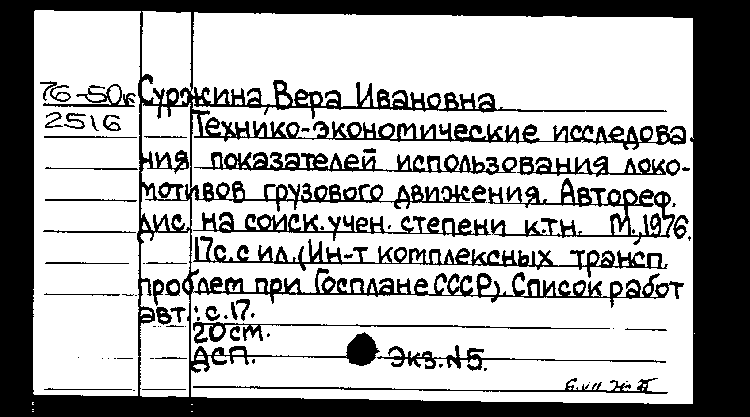 76-50к Суржина, Вера Ивановна
2516
Технико-экономические исследова-
ния показателей использования локо-
мотивов грузового движения. Автореф.
дис. на соиск. учен. степени к.т.н. М., 1976.
17с. с ил. (Ин-т комплексных трансп.
проблем при Госплане СССР). Список работ
авт.: с. 17.
20 см.
ДСП. Экз. N5.